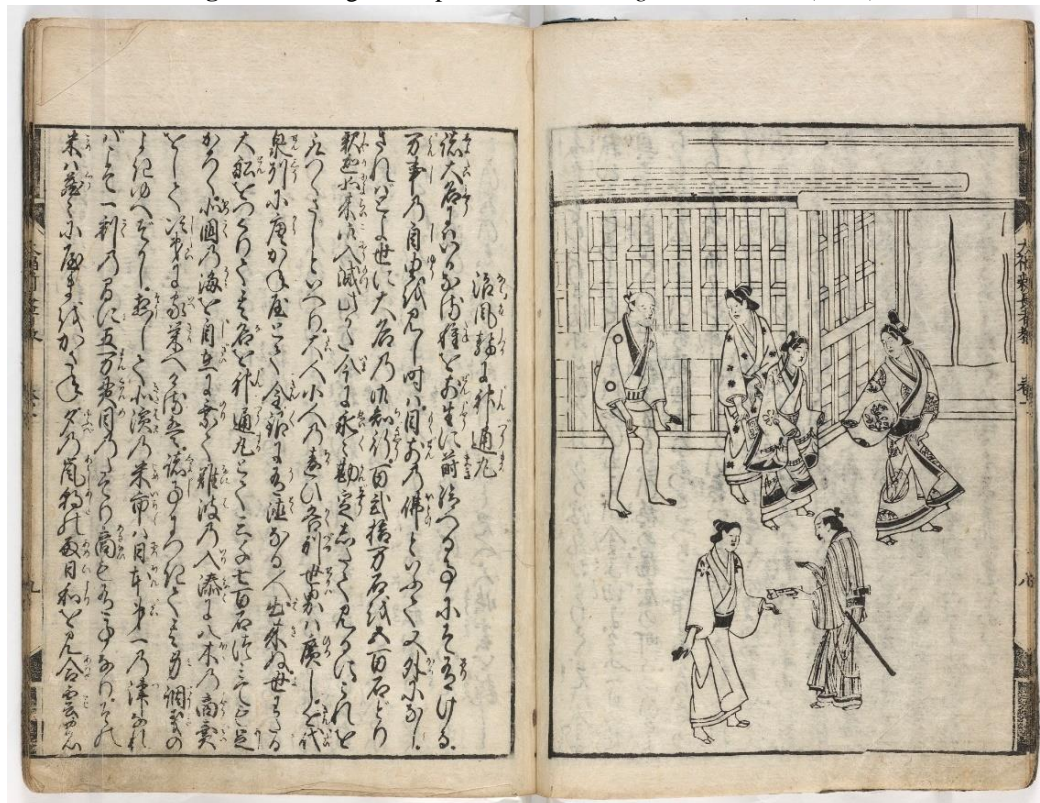 大福新長者教
八
浪風静に神通丸
諸大名にハいかなる種を前生に蒔給へる事にそ有ける
万事の自由を見し時ハ目前の仏といふて又外になし
されハこそ世に大名の御知行百弐拾万石を五百石どり
釈迦如来御入滅此かた今に永々勘定したて見るにこれを
取つくさしといへり大人小人の違ひ各別世界ハ広し近代
泉州に唐かね屋とて金銀に有徳なる人出来ぬ世わたる
大船をつくりて其名を神通丸とて三千七百石つミても足
かろく北国の海を自在に乗て難波の入湊に八木の商売
をして次第に家栄へけるハ諸事につきて其身調義の
よきゆへそかし惣して北浜の米市ハ日本第一の津なれ
ばこそ一刻の間に五万貫目のたてり商も有事なりその
米ハ蔵々にやまをかさね夕の嵐朝の雨日和を見合雲の
九